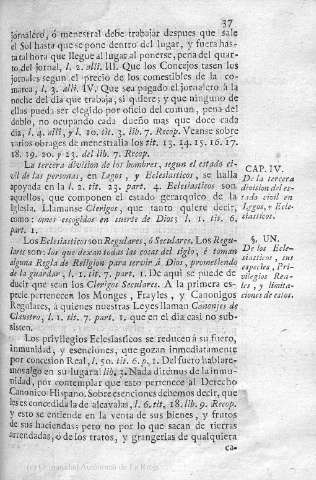 37
jornalero, ó menestral debe trabajar despues que sale
el Sol hasta que se pone dentro del lugar, y fuera has-
ta tal hora que llegue al lugar al ponerse, pena del quar-
to del jornal, l. 2. alli. III. Que los Concejos tasen los
jornales segun el precio de los comestibles de la co-
marca, l. 3. alli. IV. Que sea pagado el jornalero á la
noche del dia que trabaja, si quiere; y que ninguno de
ellas pueda ser elegido por oficio del comun, pena del
doblo, no ocupando cada dueño mas que doce cada
dia, l. 4. alli, y l. 10. tit. 3. lib. 7. Recop. Veanse sobre
varios obrages de menestralia los tit. 13. 14. 15. 16. 17.
18. 19. 20. y 23. del lib. 7. Recop.
La tercera division de los hombres, segun el estado ci-
vil de las personas, en Legos, y Eclesiasticos, se halla
apoyada en la l. 2. tit. 23. part. 4. Eclesiasticos son
aquellos, que componen el estado gerarquico de la
Iglesia. Llamanse Clerigos, que tanto quiere decir,
como: omes escogidos en suerte de Dios; l. 1. tit. 6.
part. 1.
CAP. IV.
De la tercera
division del es-
tado civil en
Legos, y Ecle-
siasticos.
Los Eclesiasticos son Regulares, ó Seculares. Los Regu-
lares son: los que dexan todas las cosas del siglo, é toman
alguna Regla de Religion para servir á Dios, prometiendo
de la guardar, l. 1. tit. 7. part. 1. De aqui se puede de
decir que sean los Clerigos Seculares. A la primera es-
pecie pertenecen los Monges, Frayles, y Canonigos
Regulares, á quienes nuestras Leyes llaman Canonjes de
Claustro, l. 1. tit. 7. part. 1. que en el dia casi no sub-
sisten.
§. UN.
De los Ecle-
siasticos, sus
especies, Pri-
vilegios Rea-
les, y limita-
ciones de estos.
Los privilegios Eclesiasticos se reducen á su fuero,
inmunidad, y esenciones, que gozan inmediatamente
por concesion Real, l. 50. tit. 6. p. 1. Del fuero hablare-
mos algo en su lugar al lib. 3. Nada diremos de la inmu-
nidad, por contemplar que esto pertenece al Derecho
Canonico Hispano. Sobre esenciones debemos decir, que
les es concedida la de alcavalas, l. 6. tit. 18. lib. 9. Recop.
y esto se entiende en la venta de sus bienes, y frutos
de sus haciendas; pero no por lo que sacan de tierras
arrendadas, o de los tratos, y grangerías de qualquiera
ca-
(c) Universidad Autónoma de La Rioja